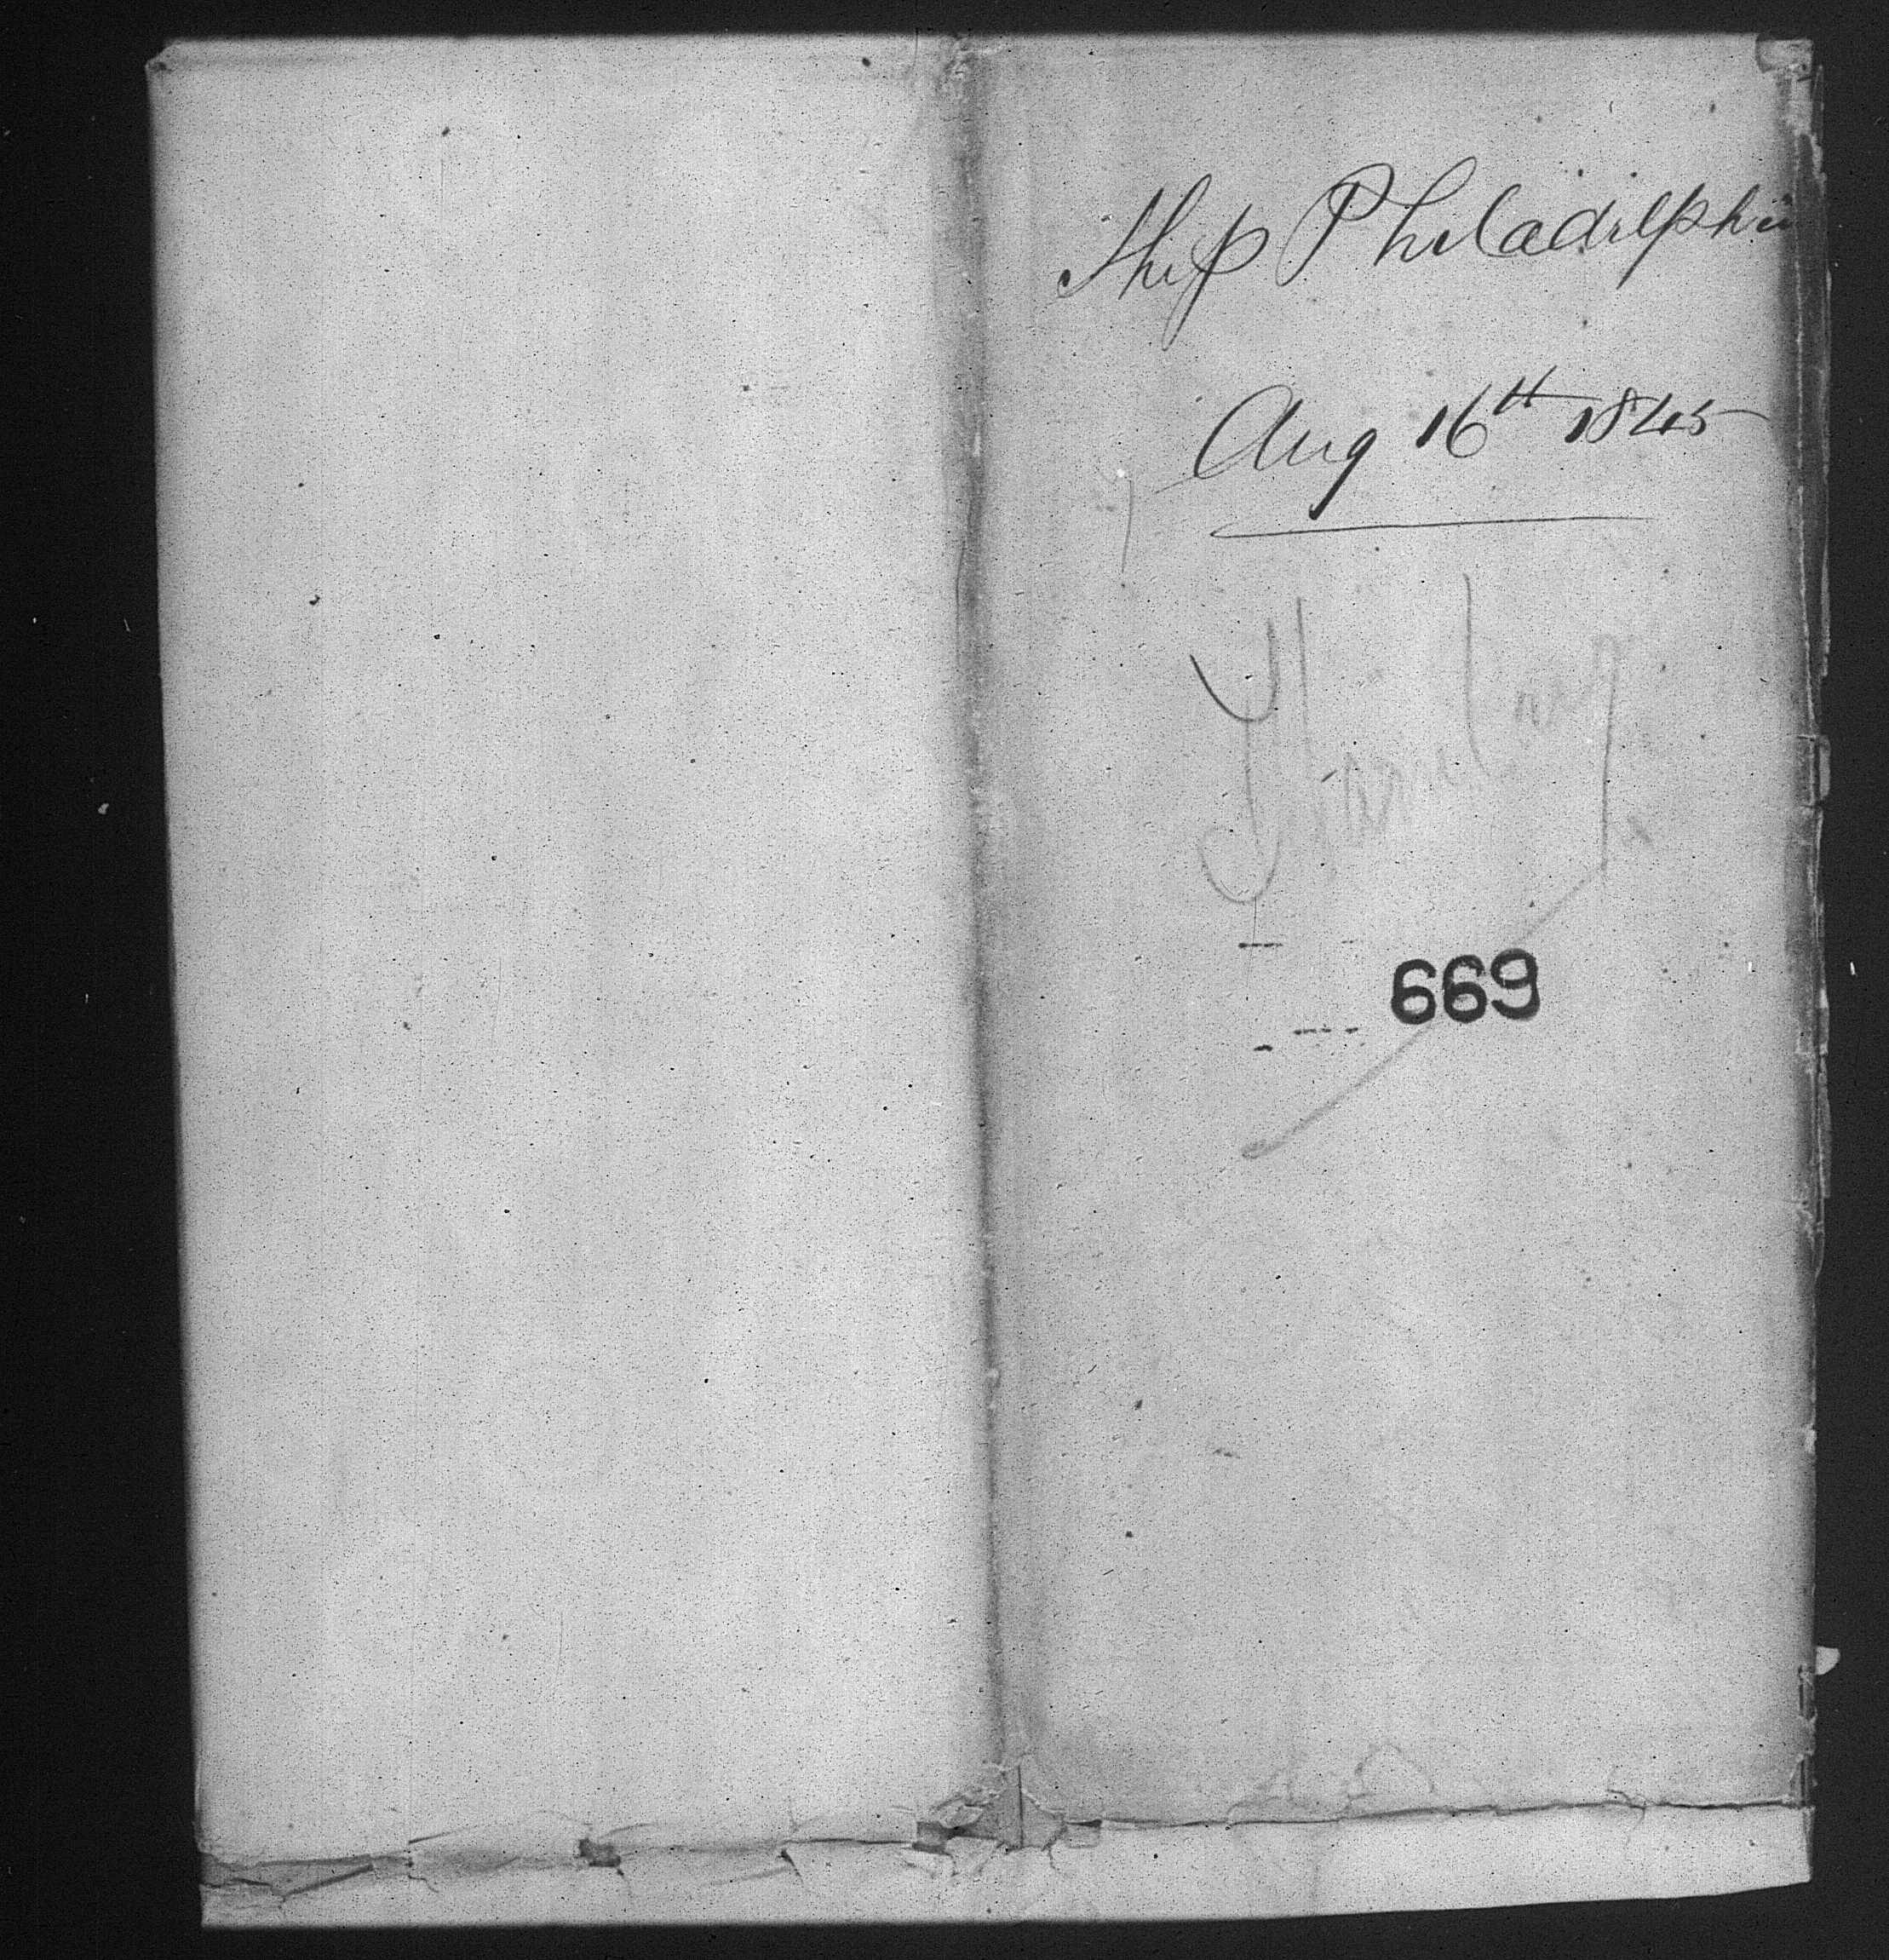 Ship Philadelphia
Aug 16th 1845
Hamburg
669